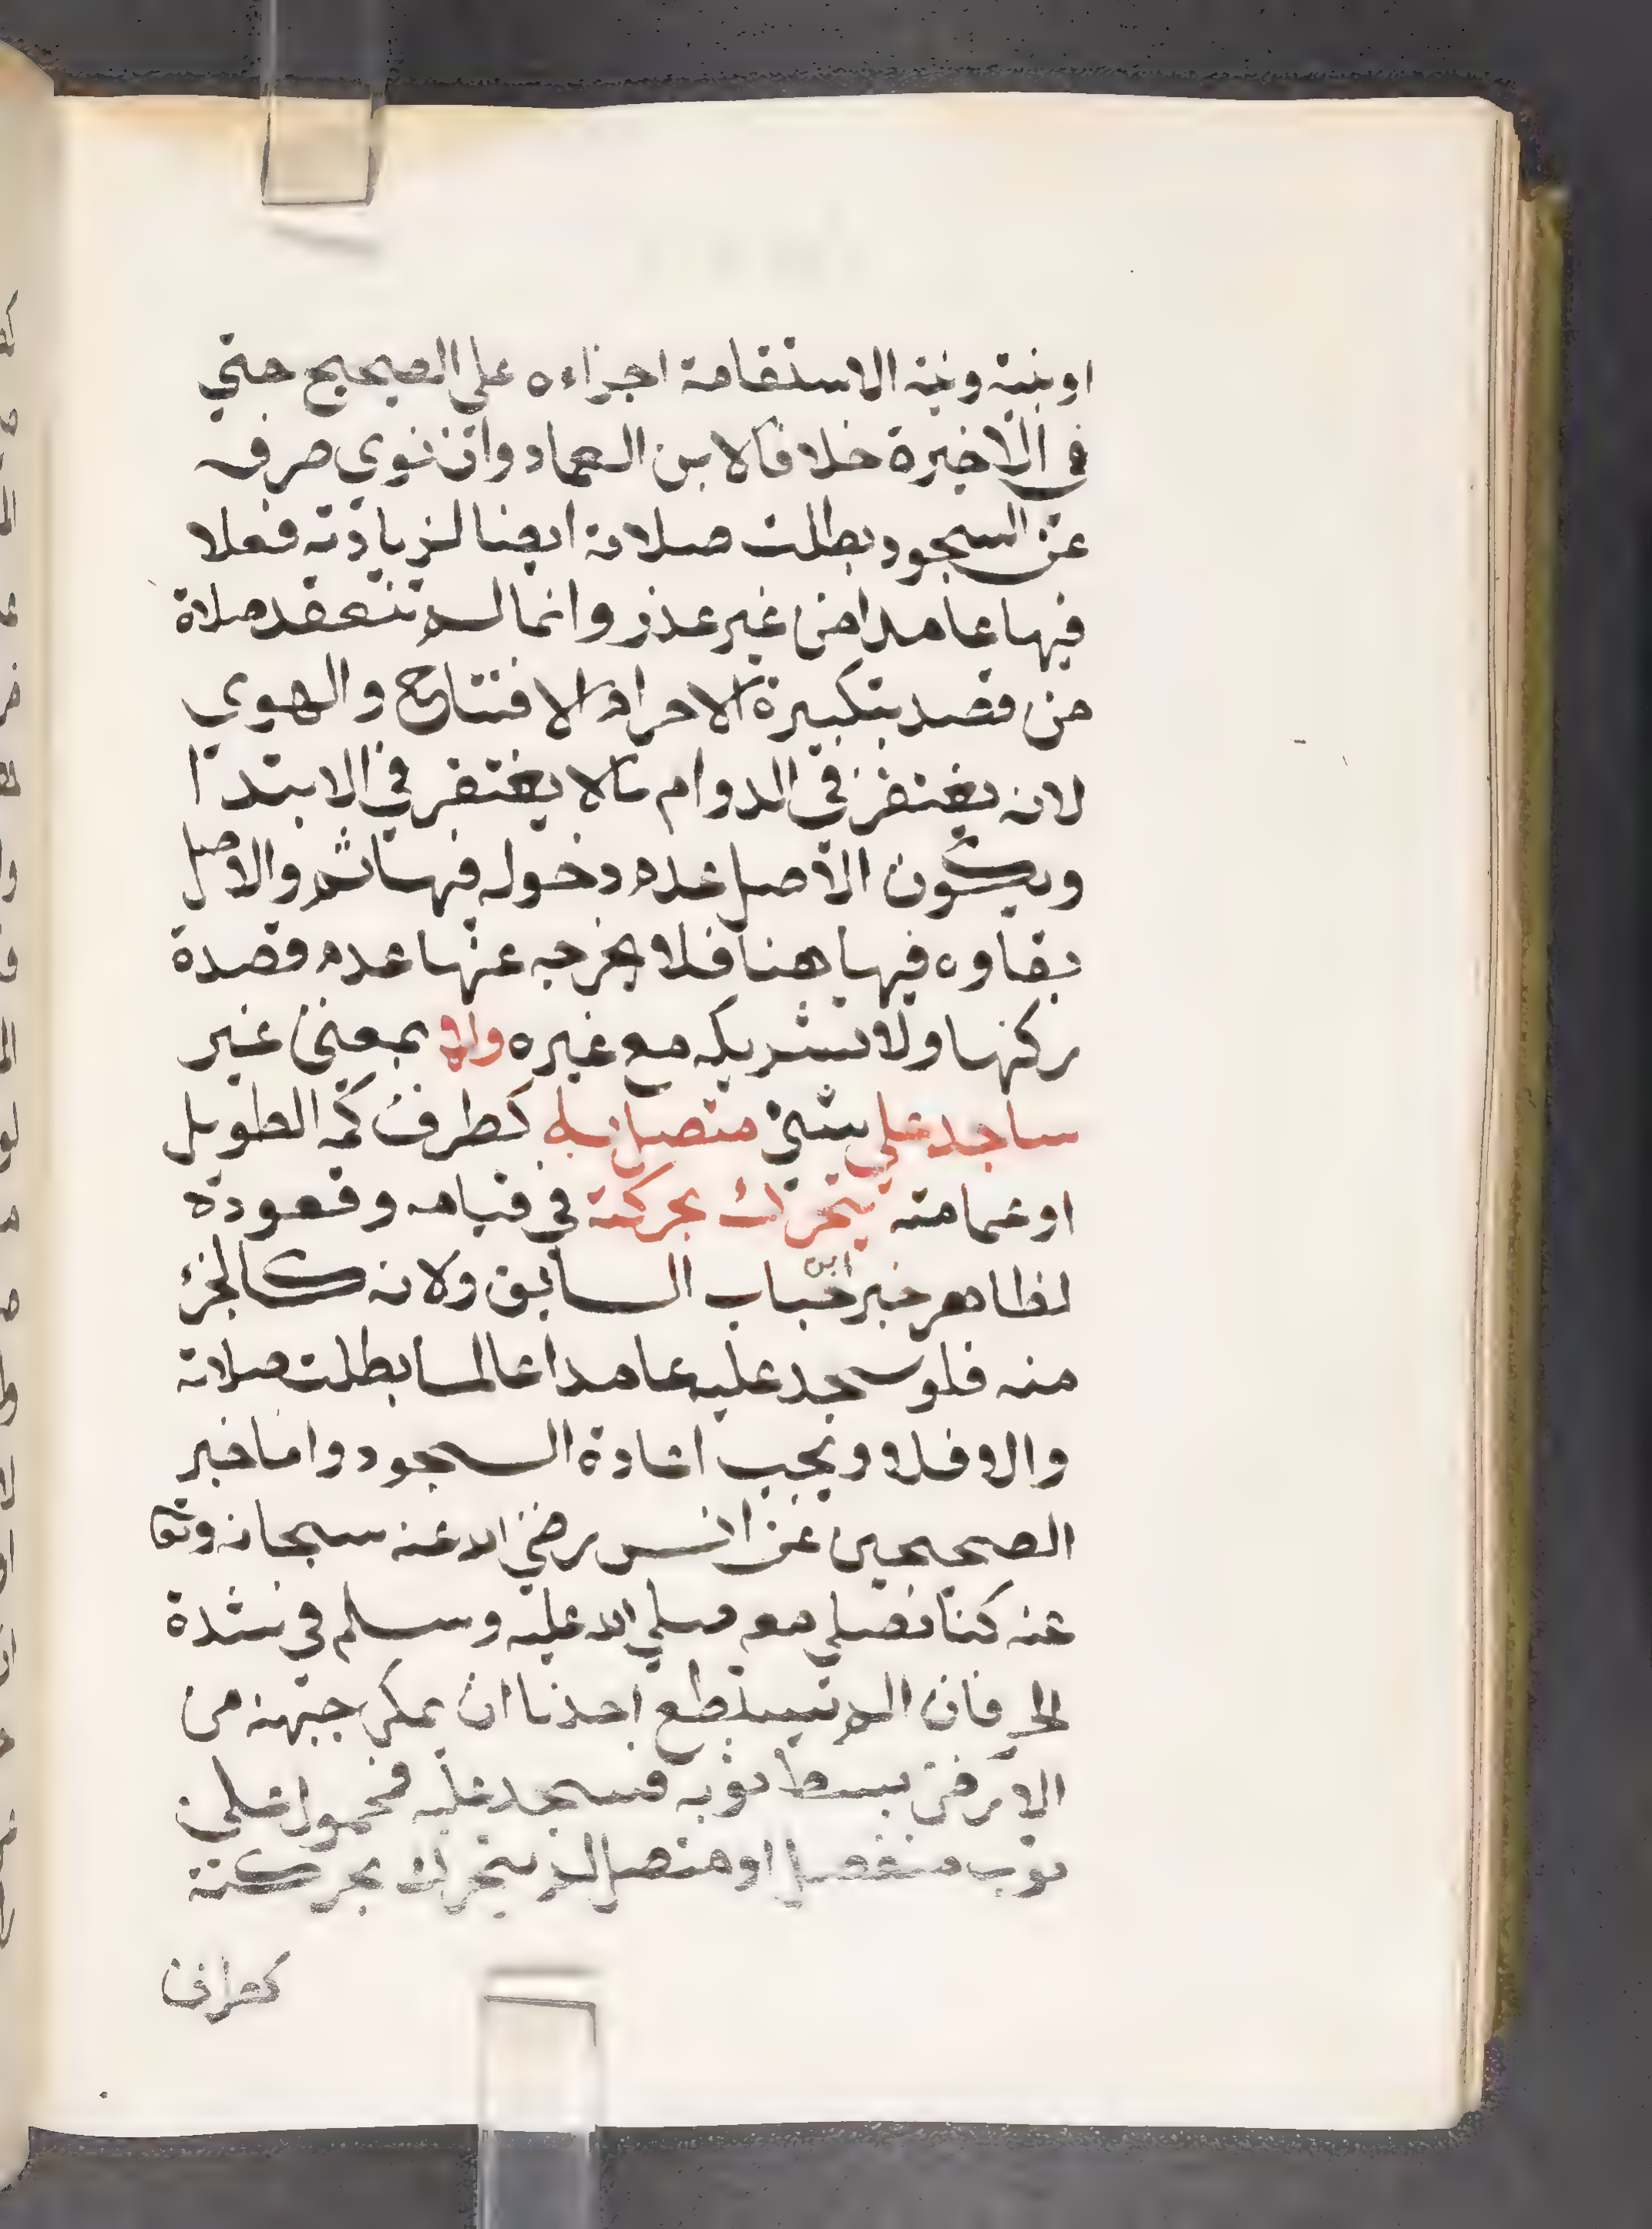 او بنية ونية الاستقامة اجزاءه علي الصحيح حتي
في الاخيرة خلافا لابن العماد وان نوي صرفه
عن السجود بطلت صلاته ايضا لزيادته فعلا
فيها عامدا من غير عذر وانما لم تنعقد صلاة
من قصد بتكبيرة الاحرام الافتتاح والهوي
لانه يغتفر في الدوام مالا يغتفر في الابتدا
ويكون الاصل عدم دخوله فيها ثم والاصل
بقاوه فيها هنا فلا يخرجه عنها عدم قصده
ركنها ولا تشريكه مع غيره ولا بمعني غير
ساجد علي شئ متصل به كطرف كمه الطويل
او عمامته يتحرك بحركته في قيامه وقعوده
لظاهر خبر ابن خباب السابق ولانه كالجزء
منه فلو سجد عليه عامدا عالما بطلت صلاته
والا فلا ويجب اعادة السجود واما خبر
الصحيحين عن انس رضي الله عنه سبحانه وتعا
عنه كنا نصلي معه صلي الله عليه وسلم في شدة
الحر فان لم يستطع احدنا ان يمكن جبهته من
الارض بسط ثوبه فسجد عليه فمحمول علي
ثوب منفصل او متصل لم يتحرك بحركته